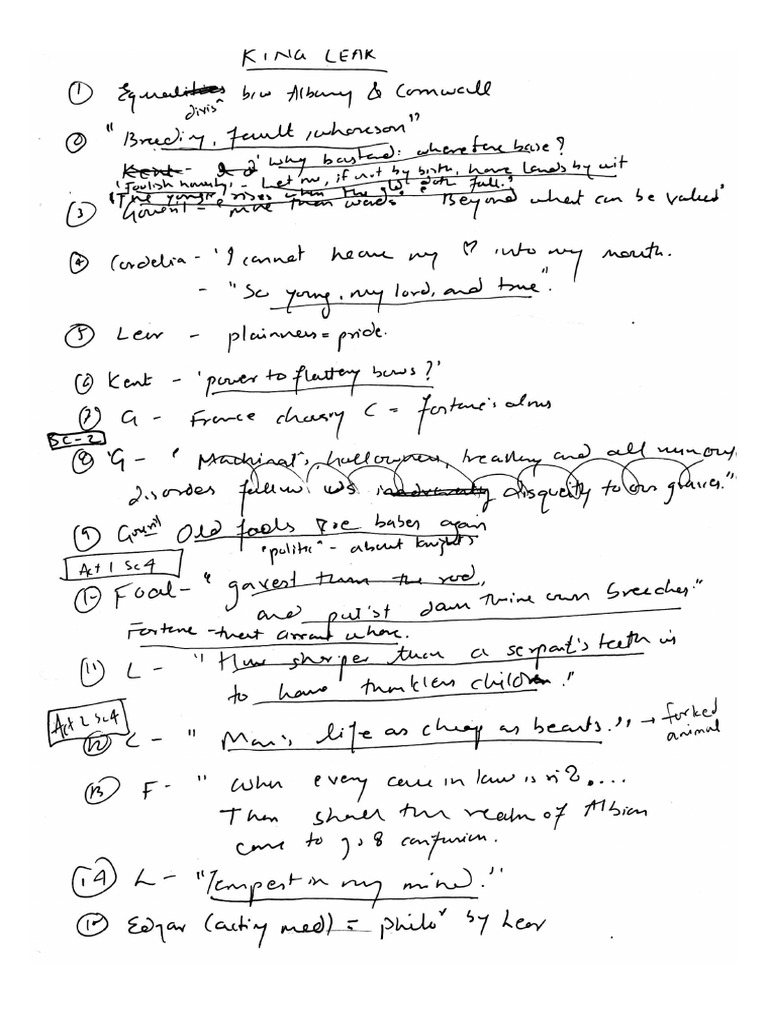 KING LEAR
① Equalities b/w Albany & Cornwall
divisⁿ
② "Breeding, fault, whoreson"
Kent - "Why bastard: wherefore base?
'Foolish honesty' - Let me, if not by birth, have lands by wit
"The younger rises when the old doth fall."
③ Goneril - "more than words" Beyond what can be valued'
④ Cordelia - 'I cannot heave my ♡ into my mouth.
- "So young, my lord, and true".
⑤ Lear - plainness = pride.
⑥ Kent - 'power to flattery bows?'
⑦ G - France chosing C = fortune's alms
SC-2
⑧ G - ' Machinatⁿs, hollowness, treachery and all ruinous
disorders follow us inadvertently disquietly to our graves."
⑨ Goneril Old fools are babes again
"politic" - about knights
Act 1 Sc 4
10 Fool - "gavest them the rod,
and put'st down thine own breeches."
Fortune - that arrant whore.
⑪ L - "How sharper than a serpant's teeth is
to have thankless children."
Act 2 Sc4
⑫ L - " Man's life as cheap as beasts." → forked
animal
⑬ F - " When every case in law is ri8....
Then shall the realm of Albion
come to gr8 confusion.
⑭ L - "Tempest in my mind."
⑮ Edgar (acting mad) = philoʳ by Lear